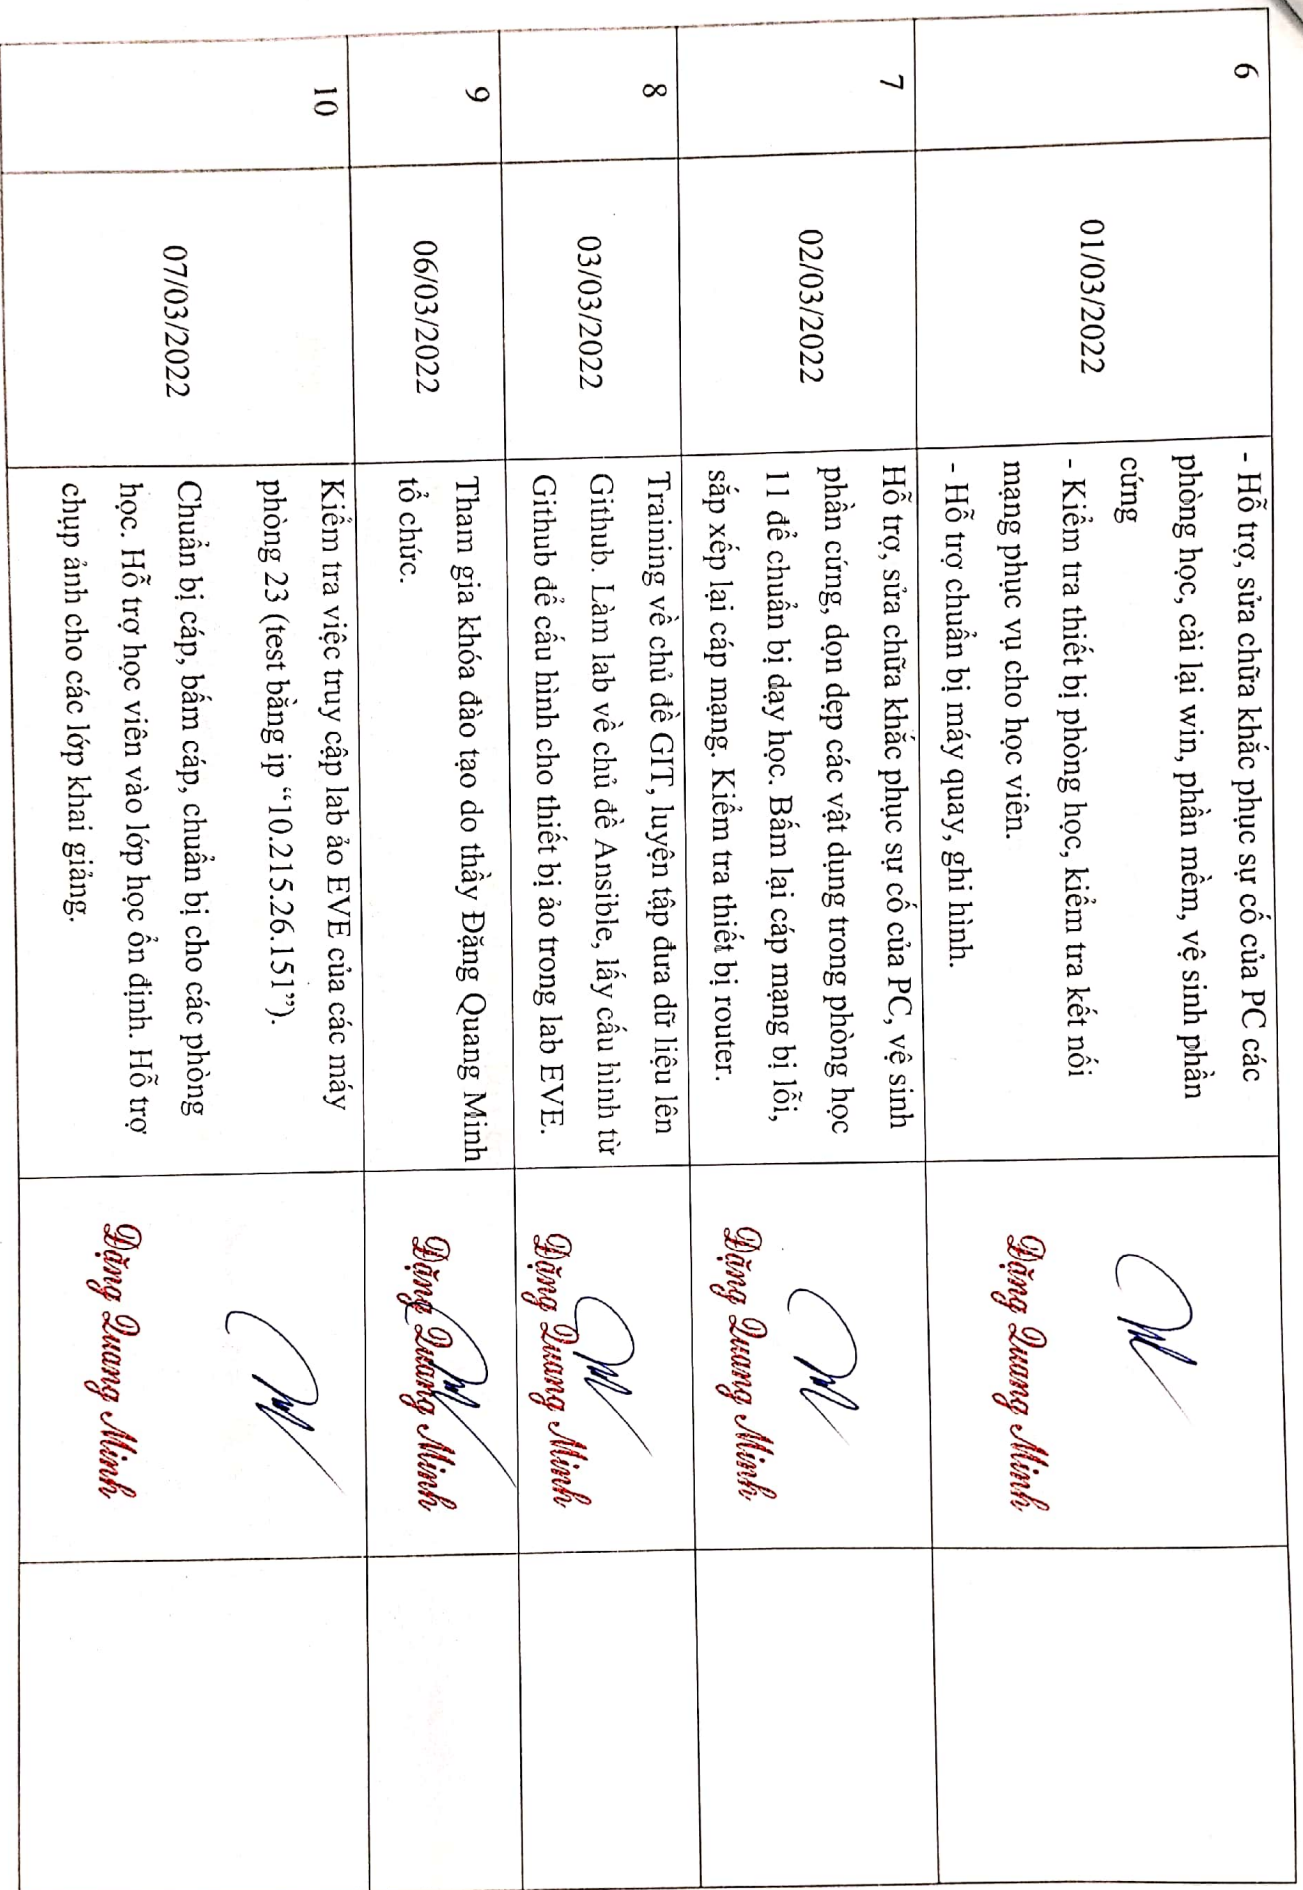 6
01/03/2022
- Hỗ trợ, sửa chữa khắc phục sự cố của PC các
phòng học, cài lại win, phần mềm, vệ sinh phần
cứng
- Kiểm tra thiết bị phòng học, kiểm tra kết nối
mạng phục vụ cho học viên.
- Hỗ trợ chuẩn bị máy quay, ghi hình.
Đặng Quang Minh
7
02/03/2022
Hỗ trợ, sửa chữa khắc phục sự cố của PC, vệ sinh
phần cứng, dọn dẹp các vật dụng trong phòng học
11 để chuẩn bị dạy học. Bấm lại cáp mạng bị lỗi,
sắp xếp lại cáp mạng. Kiểm tra thiết bị router.
Đặng Quang Minh
8
03/03/2022
Training về chủ đề GIT, luyện tập đưa dữ liệu lên
Github. Làm lab về chủ đề Ansible, lấy cấu hình từ
Github để cấu hình cho thiết bị ảo trong lab EVE.
Đặng Quang Minh
9
06/03/2022
Tham gia khóa đào tạo do thầy Đặng Quang Minh
tổ chức.
Đặng Quang Minh
10
07/03/2022
Kiểm tra việc truy cập lab ảo EVE của các máy
phòng 23 (test bằng ip “10.215.26.151”).
Chuẩn bị cáp, bấm cáp, chuẩn bị cho các phòng
học. Hỗ trợ học viên vào lớp học ổn định. Hỗ trợ
chụp ảnh cho các lớp khai giảng.
Đặng Quang Minh